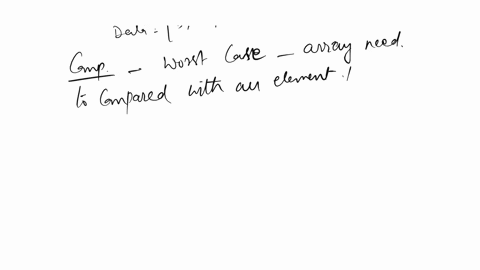 Data = [
Comp. - Worst Case - array need.
to Compared with all element.